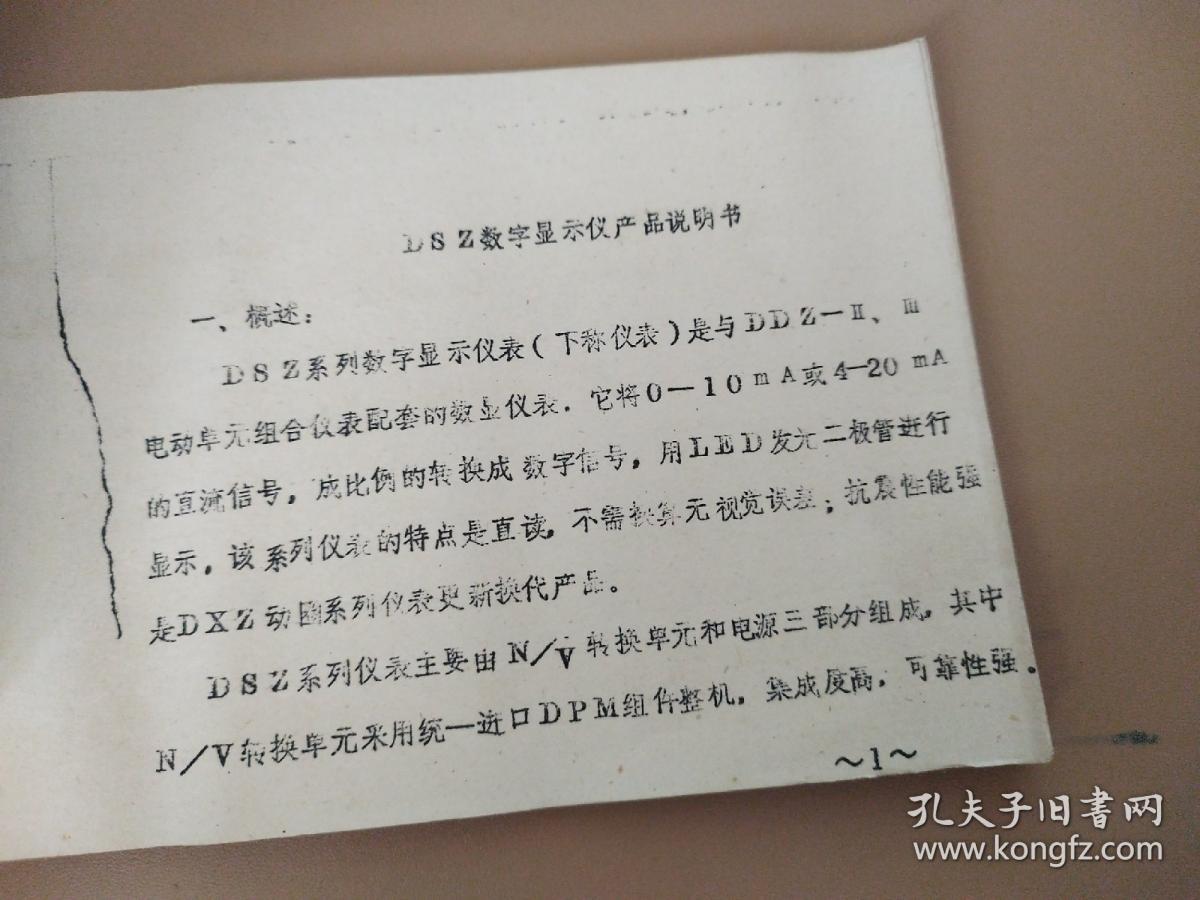 DSZ数字显示仪产品说明书
一、概述：
DSZ系列数字显示仪表（下称仪表）是与DDZ—Ⅱ、Ⅲ
电动单元组合仪表配套的数显仪表．它将0—10mA或4—20mA
的直流信号，成比例的转换成数字信号，用LED发光二极管进行
显示，该系列仪表的特点是直读，不需换算无视觉误差；抗震性能强
是DXZ动圈系列仪表更新换代产品。
DSZ系列仪表主要由N/V转换单元和电源三部分组成，其中
N/V转换单元采用统一进口DPM组件整机，集成度高，可靠性强．
～1～
孔夫子旧书网
www.kongfz.com